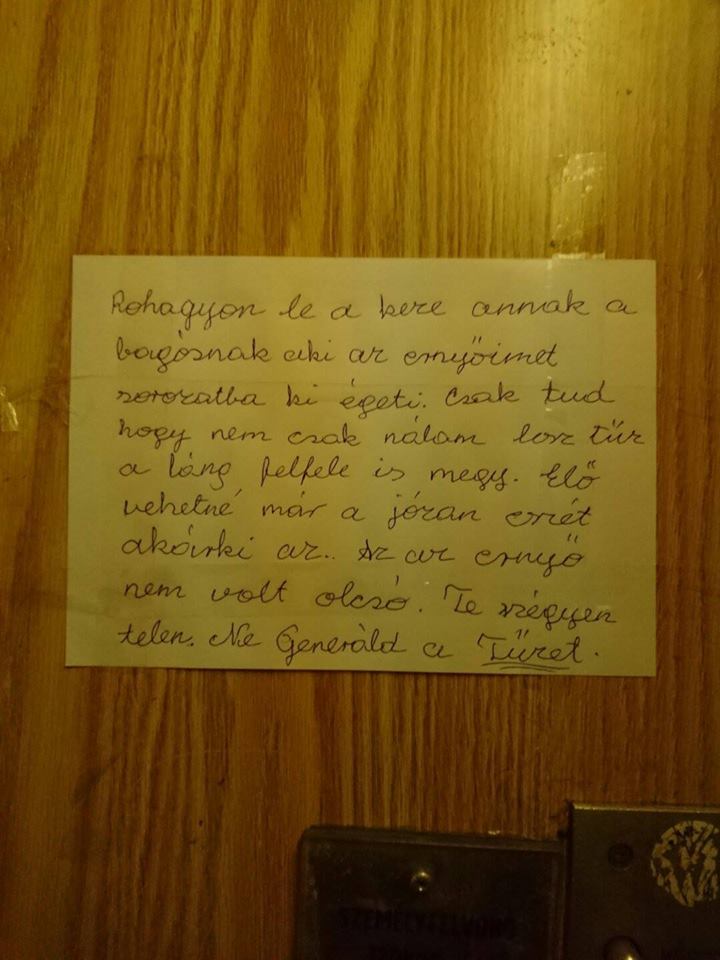 Rohagyon le a keze annak a
bagósnak aki az ernyőimet
sorozatba ki égeti. Csak tud
hogy nem csak nálam lesz tűz
a láng felfele is megy. Elő
vehetné már a józan eszét
akárki az.. Az az ernyő
nem volt olcsó. Te szégyen
telen. Ne Generáld a Tüzet.
SZEMÉLYFELVONÓ